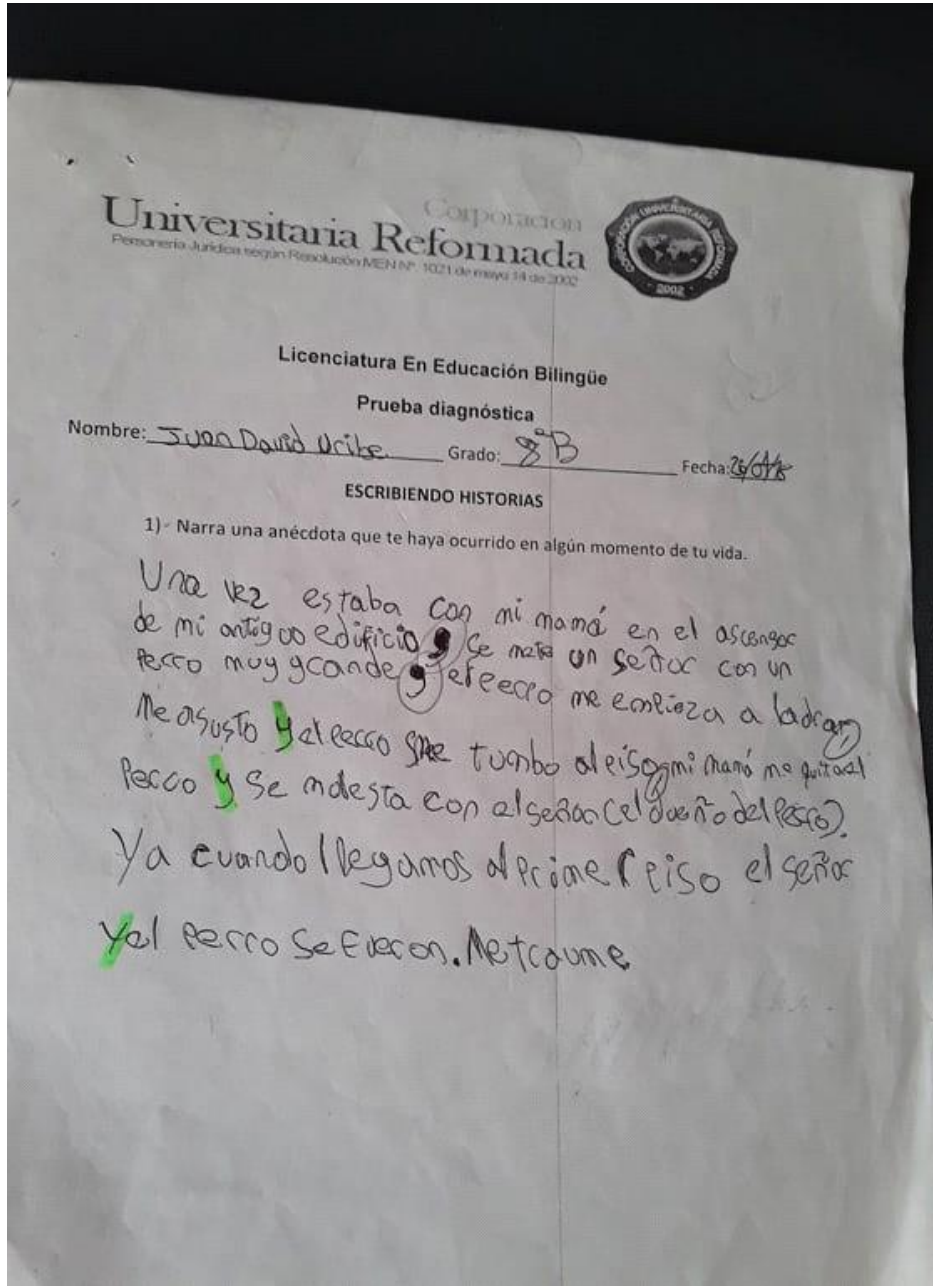 Corporación
Universitaria Reformada
Personería Jurídica según Resolución MEN Nº. 1021 de mayo 14 de 2002
CORPORACIÓN UNIVERSITARIA REFORMADA
2002
Licenciatura En Educación Bilingüe
Prueba diagnóstica
Nombre: Juan David Uribe Grado: 8ªB Fecha:
ESCRIBIENDO HISTORIAS
1)- Narra una anécdota que te haya ocurrido en algún momento de tu vida.
Una vez estaba con mi mamá en el ascensor
de mi antiguo edificio, se mete un señor con un
perro muy grande, el perro me empieza a ladrar,
Me asusto y el perro me tumbo al piso, mi mamá me quita el
Perro y se molesta con el señor (el dueño del perro).
Ya cuando llegamos al primer piso el señor
y el perro se fueron. Me traume.